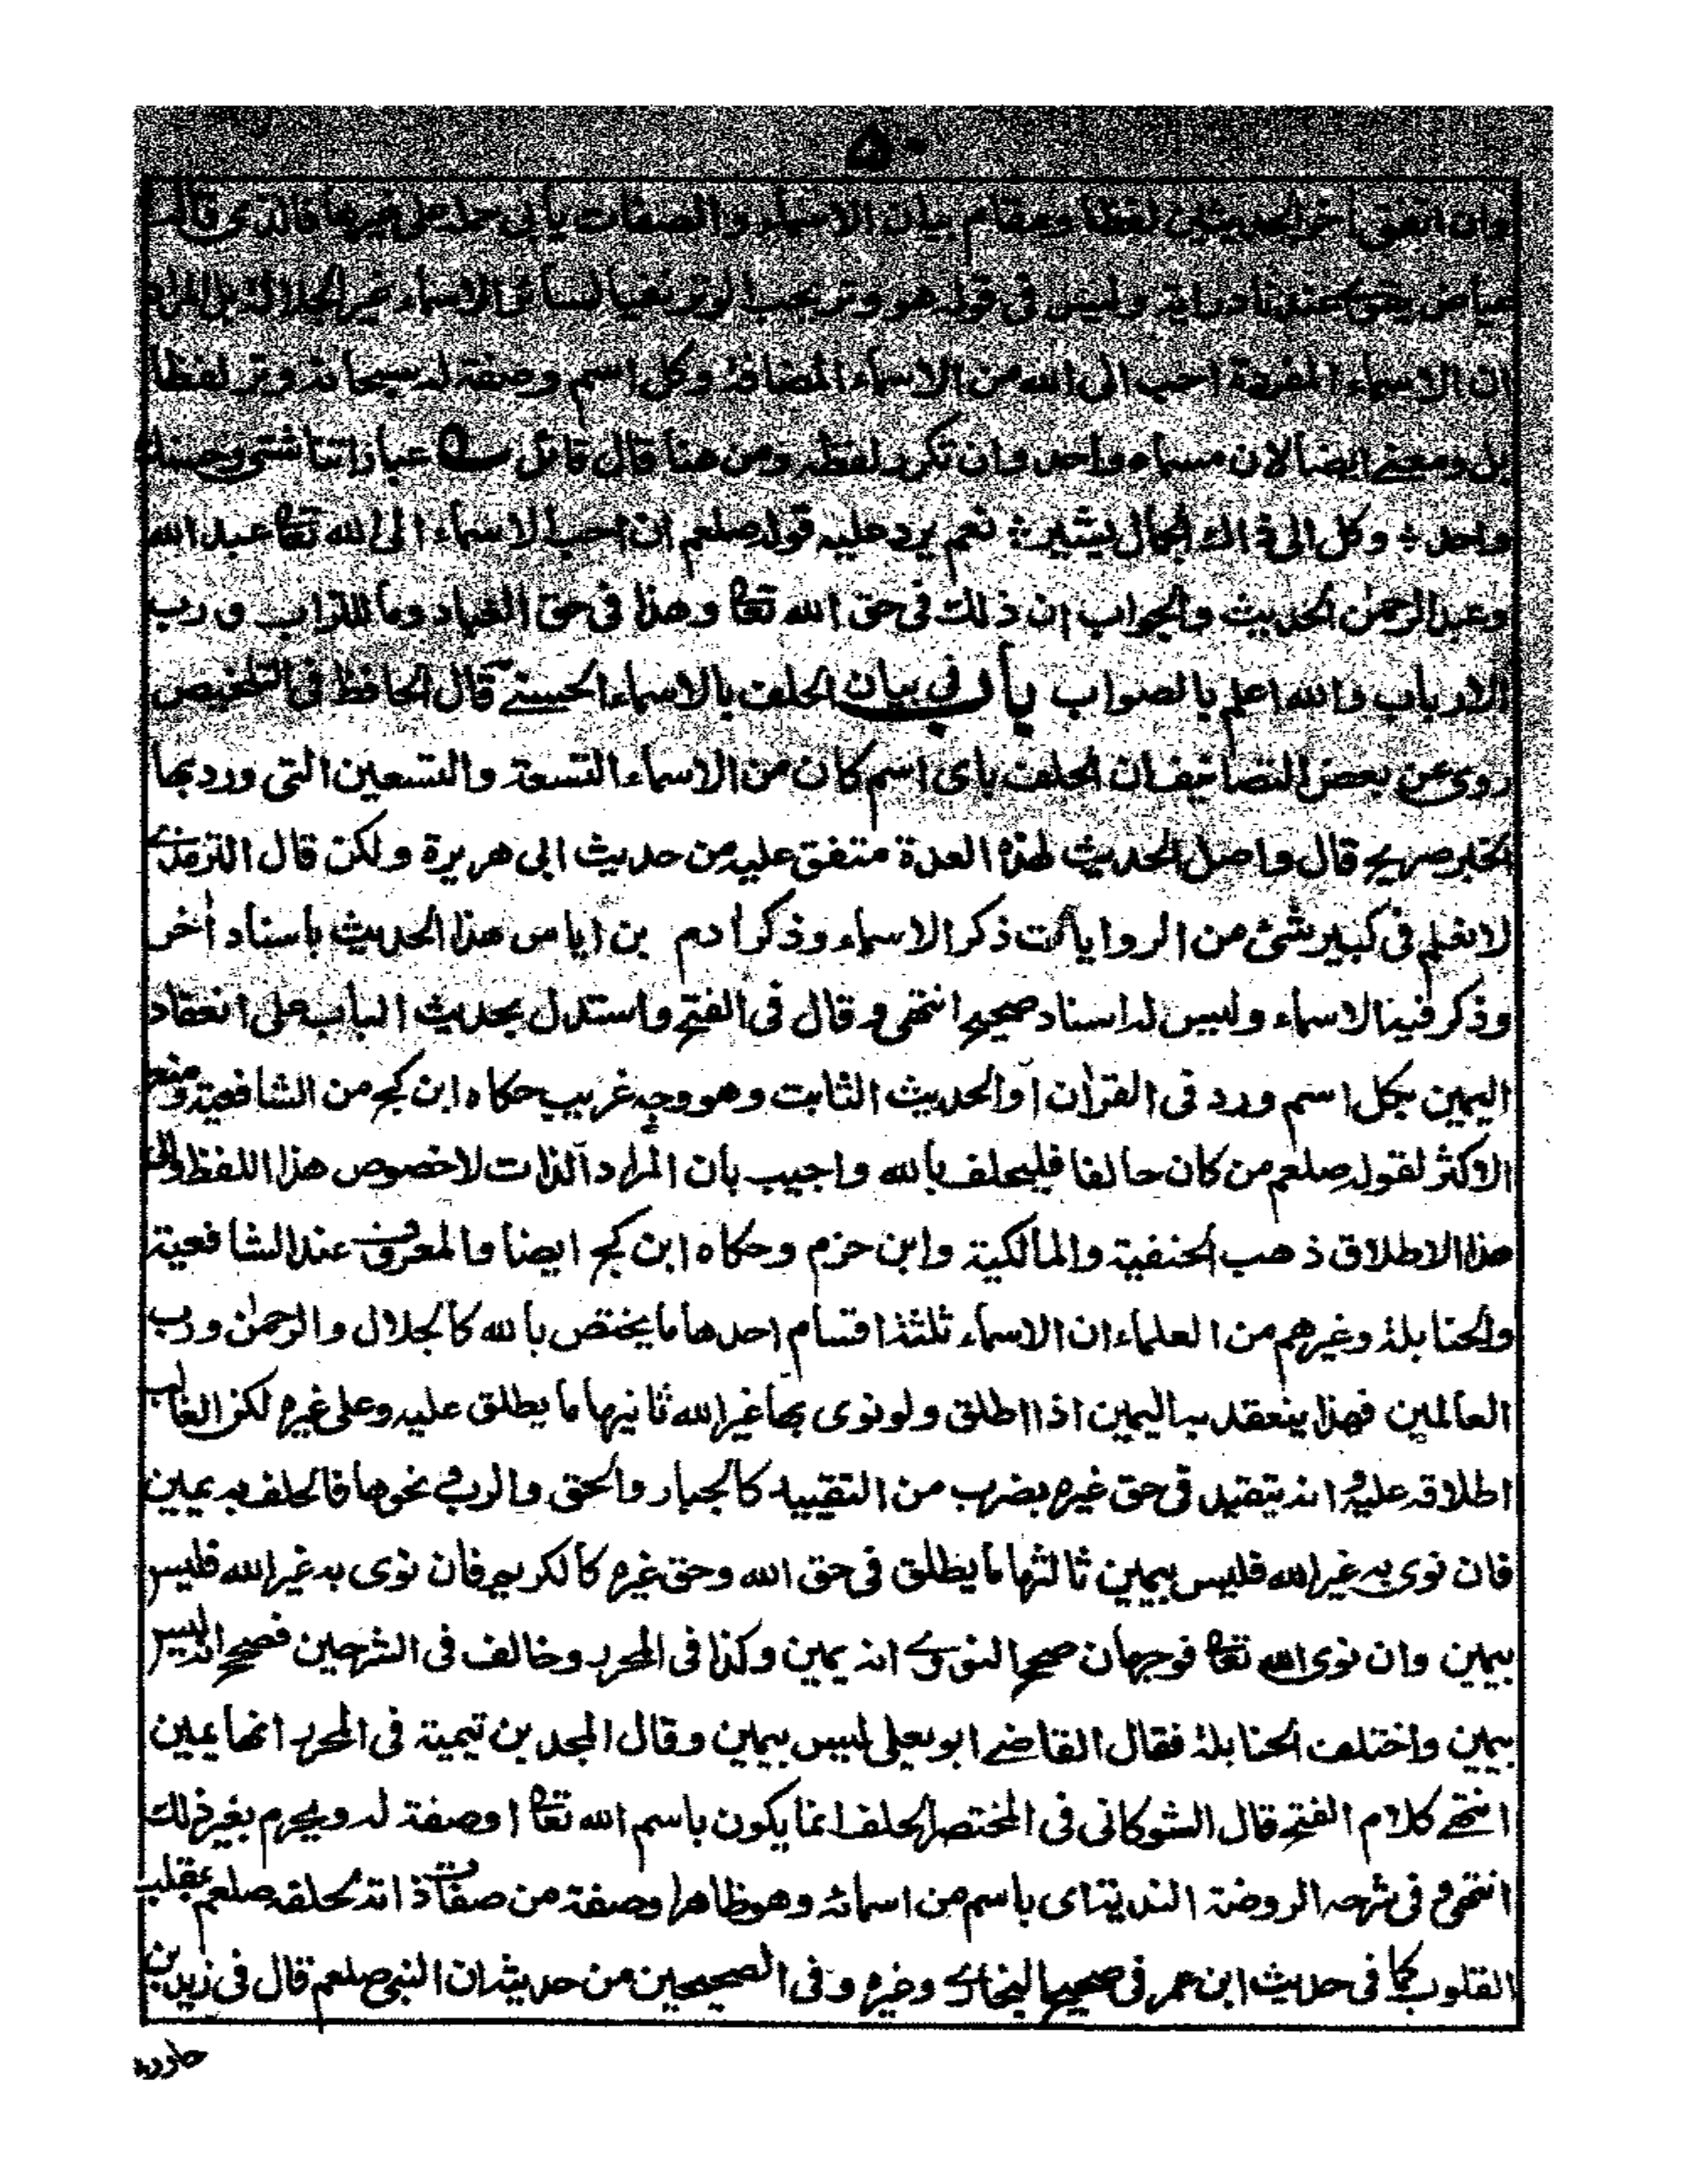 ٥٠
وان اتفق اخر الحديثين لفظا ومقام بيان الاسماء والصفات يأبى حمله على غيرها فالذى قاله
عياض عندنا دراية وليس فى قوله هو وتر يحب الوتر نفيا لسائر الاسماء غير الجلالة بل المراد
ان الاسماء المفردة احب الى الله من الاسماء المضافة وكل اسم وصفة له سبحانه وتر لفظا
بل ومعنے ايضا لان مسماه واحد وان تكرر لفظه ومن هنا قال قائل عباراتنا شتى وحسنك
واحد ؞ وكل الى ذاك الجمال يشير ؞ نعم يرد عليه قوله صلعم ان احب الاسماء الى الله تعا عبد الله
وعبد الرحمٰن الحديث والجواب ان ذلك فى حق الله تعا وهذا فى حق العباد وما للتراب ورب
الارباب والله اعلم بالصواب باب فى بيان الحلف بالاسماء الحسنے قال الحافظ فى التلخيص
روى عن بعض التصانيف ان الحلف باى اسم كان من الاسماء التسعة والتسعين التى ورد بها
الخبر صريح قال واصل الحديث لهذه العدة متفق عليه من حديث ابى هريرة ولكن قال الترمذے
لا نعلم فى كبير شئ من الروايات ذكر الاسماء وذكر ادم بن اياس هذا الحديث باسناد اٰخر
وذكر فيه الاسماء وليس له اسناد صحيح انتهى وقال فى الفتح واستدل بحديث الباب على انعقاد
اليمين بكل اسم ورد فى القراٰن او الحديث الثابت وهو وجه غريب حكاه ابن كج من الشافعية ومنع
الاكثر لقوله صلعم من كان حالفا فليحلف بالله واجيب بان المراد الذات لا خصوص هذا اللفظ والى
هذا الاطلاق ذهب الحنفية والمالكية وابن حزم وحكاه ابن كج ايضا والمعروف عند الشافعية
والحنابلة وغيرهم من العلماء ان الاسماء ثلثة اقسام احدها ما يختص بالله كالجلال والرحمٰن ورب
العالمين فهذا ينعقد به اليمين اذا اطلق ولو نوى بها غير الله ثانيها ما يطلق عليه وعلى غيره لكن الغالب
اطلاقه عليه وانه يتقيد فى حق غيره بضرب من التقييد كالجبار والحق والرب ونحوها فالحلف به يمين
فان نوى به غير الله فليس بيمين ثالثها ما يطلق فى حق الله وحق غيره كالكريم فان نوى به غير الله فليس
بيمين وان نوى الله تعا فوجهان صحح النووے انه يمين وكذا فى المحرر وخالف فى الشرحين فصحح انه ليس
بيمين واختلف الحنابلة فقال القاضے ابو يعلى ليس بيمين وقال المجد بن تيمية فى المحرر انها يمين
انتهے كلام الفتح قال الشوكانى فى المختصر الحلف انما يكون باسم الله تعا او صفة له ويحرم بغير ذلك
انتهى وفى شرحه الروضة الندية اى باسم من اسمائه وهو ظاهر او صفة من صفات ذاته لحلفه صلعم بمقلب
القلوب كما فى حديث ابن عمر فى صحيح البخارے وغيره وفى الصحيحين من حديثه ان النبى صلعم قال فى زيد بن
حارثه